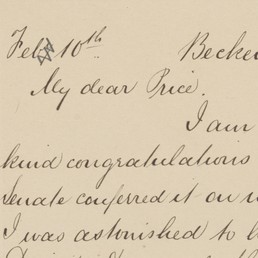 Feb 10th Becke
My dear Price.
I am
kind congratulations
Senate conferred it on
I was astonished to